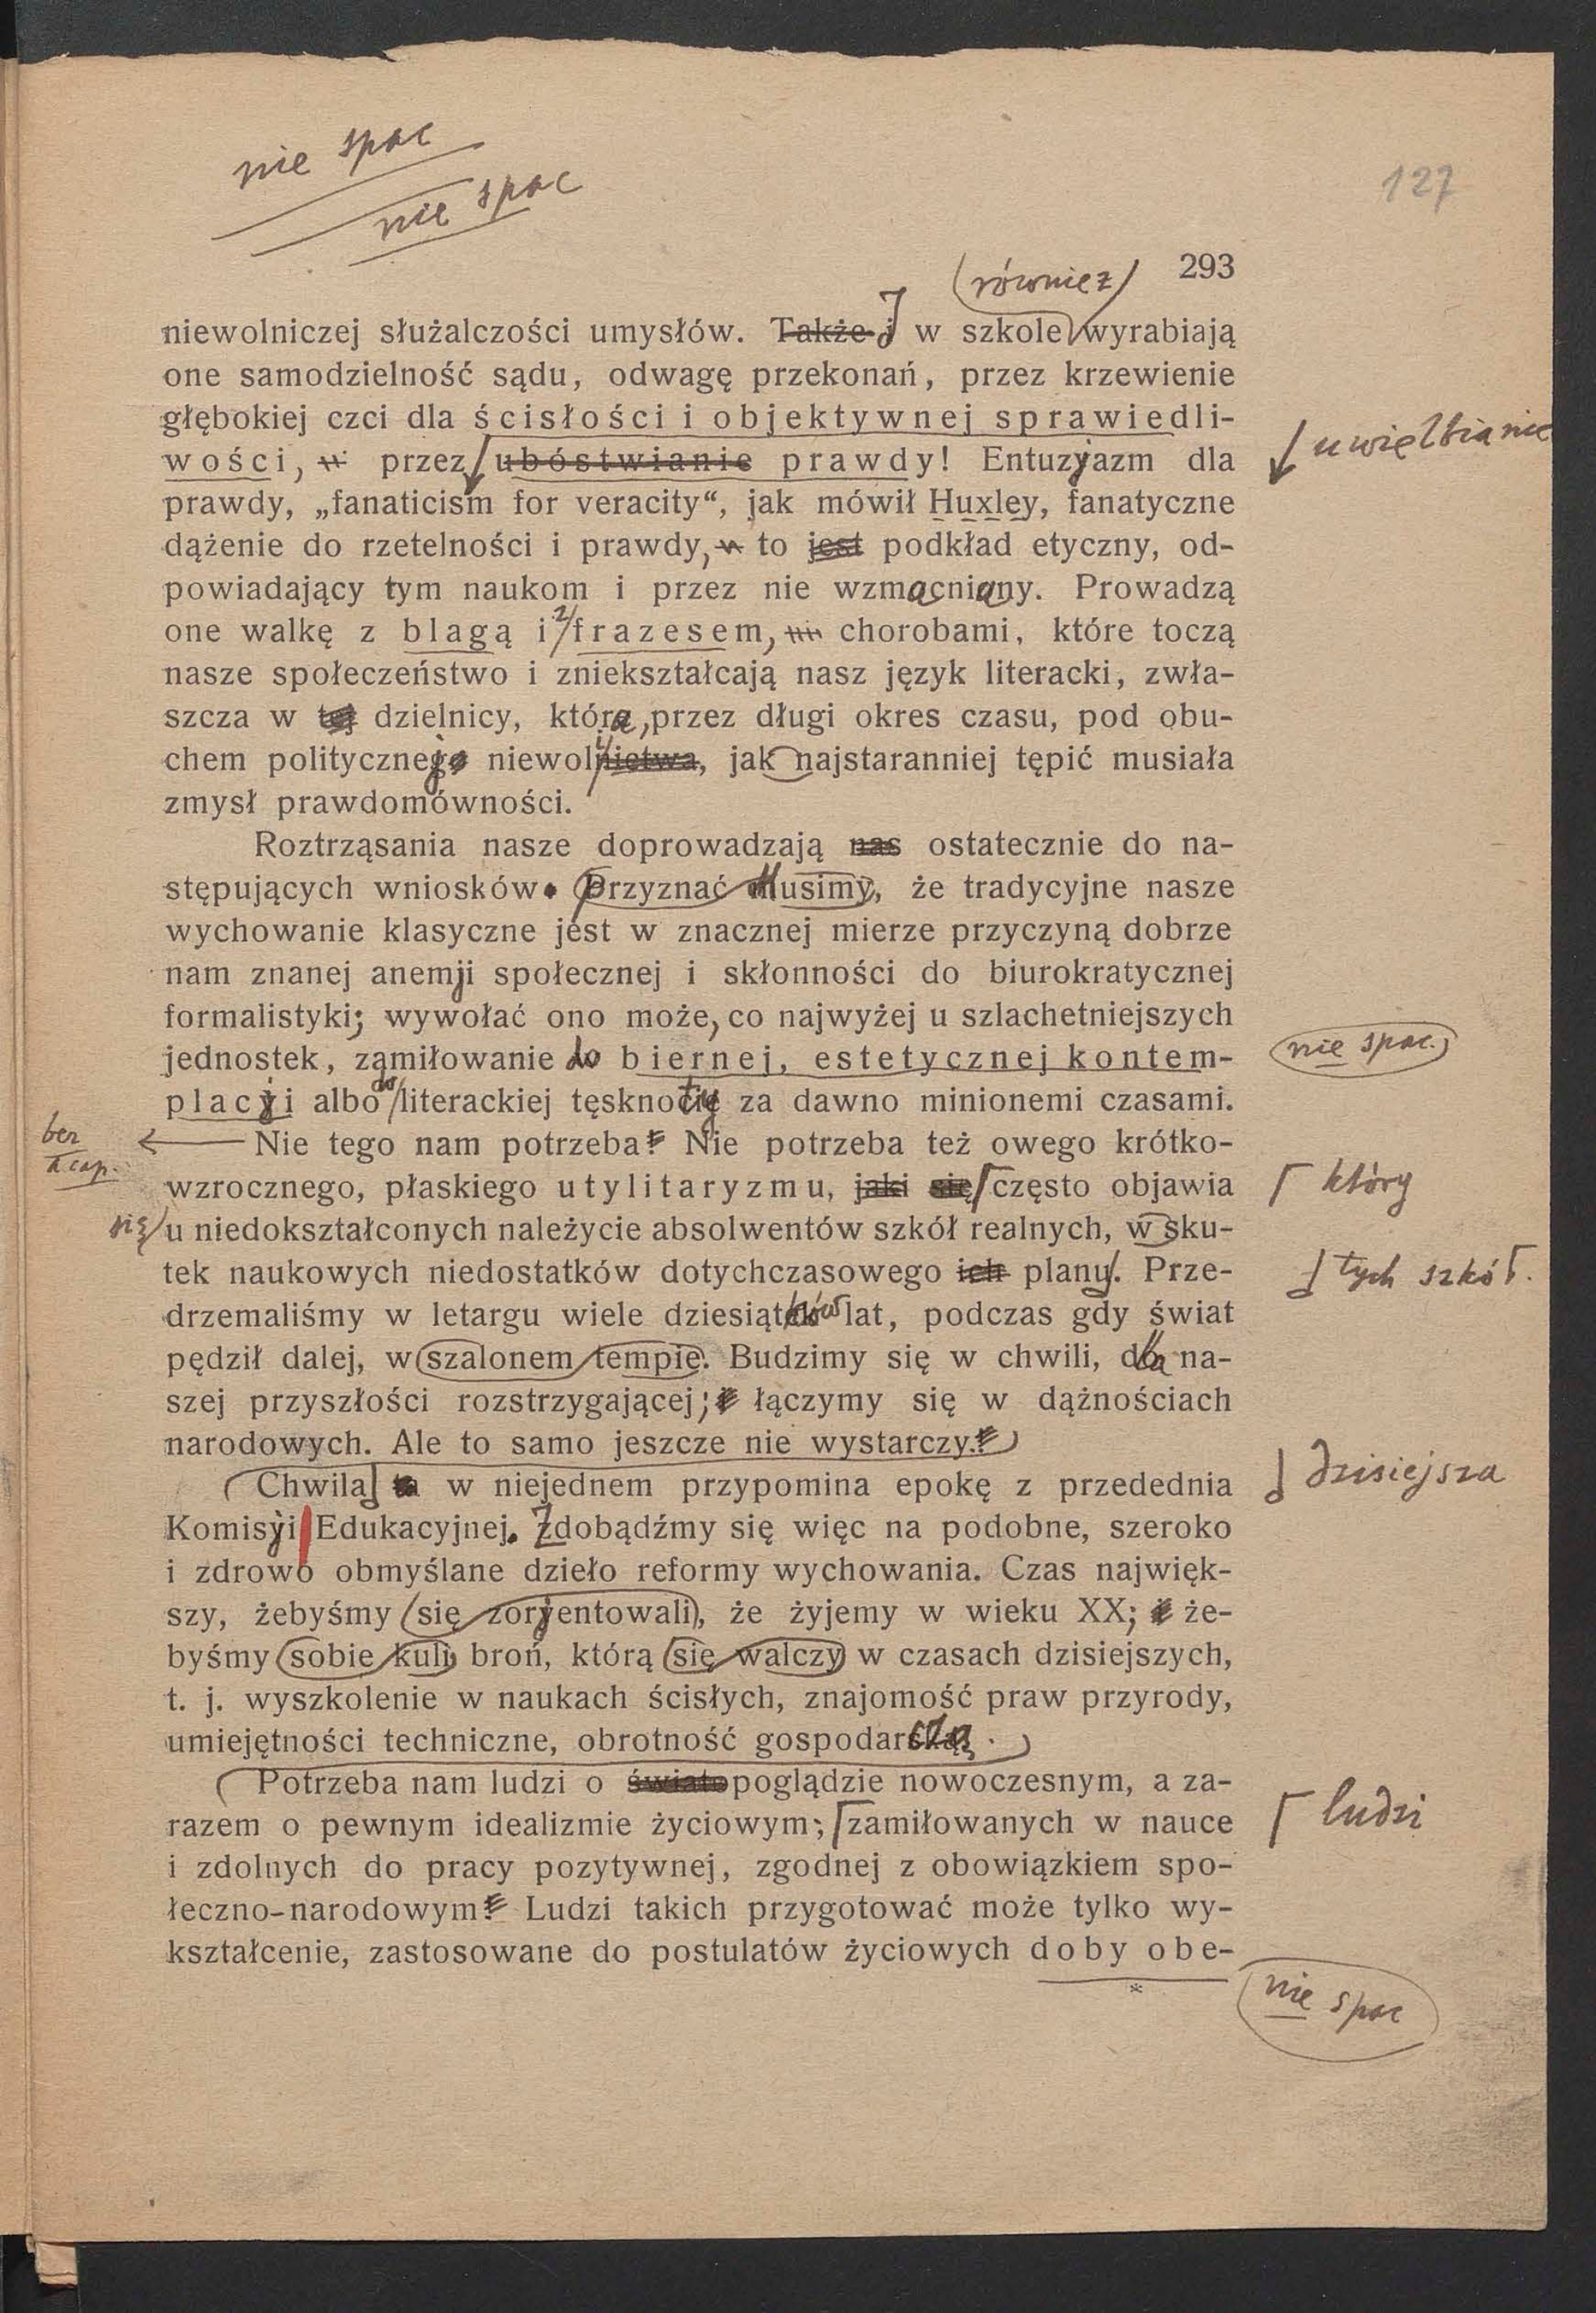 nie spac
nie spac
127
(również)
293
niewolniczej służalczości umysłów. Także i J w szkole wyrabiają
one samodzielność sądu, odwagę przekonań, przez krzewienie
głębokiej czci dla ścisłości i objektywnej sprawiedli-
uwielbianie
wości, przez ubóstwianie prawdy! Entuzyazm dla
prawdy, „fanaticism for veracity“, jak mówił Huxley, fanatyczne
dążenie do rzetelności i prawdy, to jest podkład etyczny, od-
powiadający tym naukom i przez nie wzmacniany. Prowadzą
one walkę z blagą i z frazesem, chorobami, które toczą
nasze społeczeństwo i zniekształcają nasz język literacki, zwła-
szcza w tej dzielnicy, która, przez długi okres czasu, pod obu-
chem politycznego niewolnictwa, jak najstaranniej tępić musiała
zmysł prawdomówności.
Roztrząsania nasze doprowadzają nas ostatecznie do na-
stępujących wniosków. Przyznać musimy, że tradycyjne nasze
wychowanie klasyczne jest w znacznej mierze przyczyną dobrze
nam znanej anemji społecznej i skłonności do biurokratycznej
formalistyki; wywołać ono może, co najwyżej u szlachetniejszych
jednostek, zamiłowanie do biernej, estetycznej kontem-
nie spac.
placyi albo do literackiej tęsknoty za dawno minionemi czasami.
bez
acap.
Nie tego nam potrzeba! Nie potrzeba też owego krótko-
wzrocznego, płaskiego utylitaryzmu, jaki się często objawia
który
się
u niedokształconych należycie absolwentów szkół realnych, w sku-
tek naukowych niedostatków dotychczasowego ich planu. Prze-
tych szkół.
drzemaliśmy w letargu wiele dziesiątków lat, podczas gdy świat
pędził dalej, w szalonem tempie. Budzimy się w chwili, dla na-
szej przyszłości rozstrzygającej; łączymy się w dążnościach
narodowych. Ale to samo jeszcze nie wystarczy.
Chwila ta w niejednem przypomina epokę z przedednia
dzisiejsza
Komisyi Edukacyjnej. Zdobądźmy się więc na podobne, szeroko
i zdrowo obmyślane dzieło reformy wychowania. Czas najwięk-
szy, żebyśmy się zorjentowali, że żyjemy w wieku XX; że-
byśmy sobie kuli broń, którą się walczy w czasach dzisiejszych,
t. j. wyszkolenie w naukach ścisłych, znajomość praw przyrody,
umiejętności techniczne, obrotność gospodarczą.
Potrzeba nam ludzi o światopoglądzie nowoczesnym, a za-
razem o pewnym idealizmie życiowym; zamiłowanych w nauce
ludzi
i zdolnych do pracy pozytywnej, zgodnej z obowiązkiem spo-
łeczno-narodowym! Ludzi takich przygotować może tylko wy-
kształcenie, zastosowane do postulatów życiowych doby obe-
*
nie spac